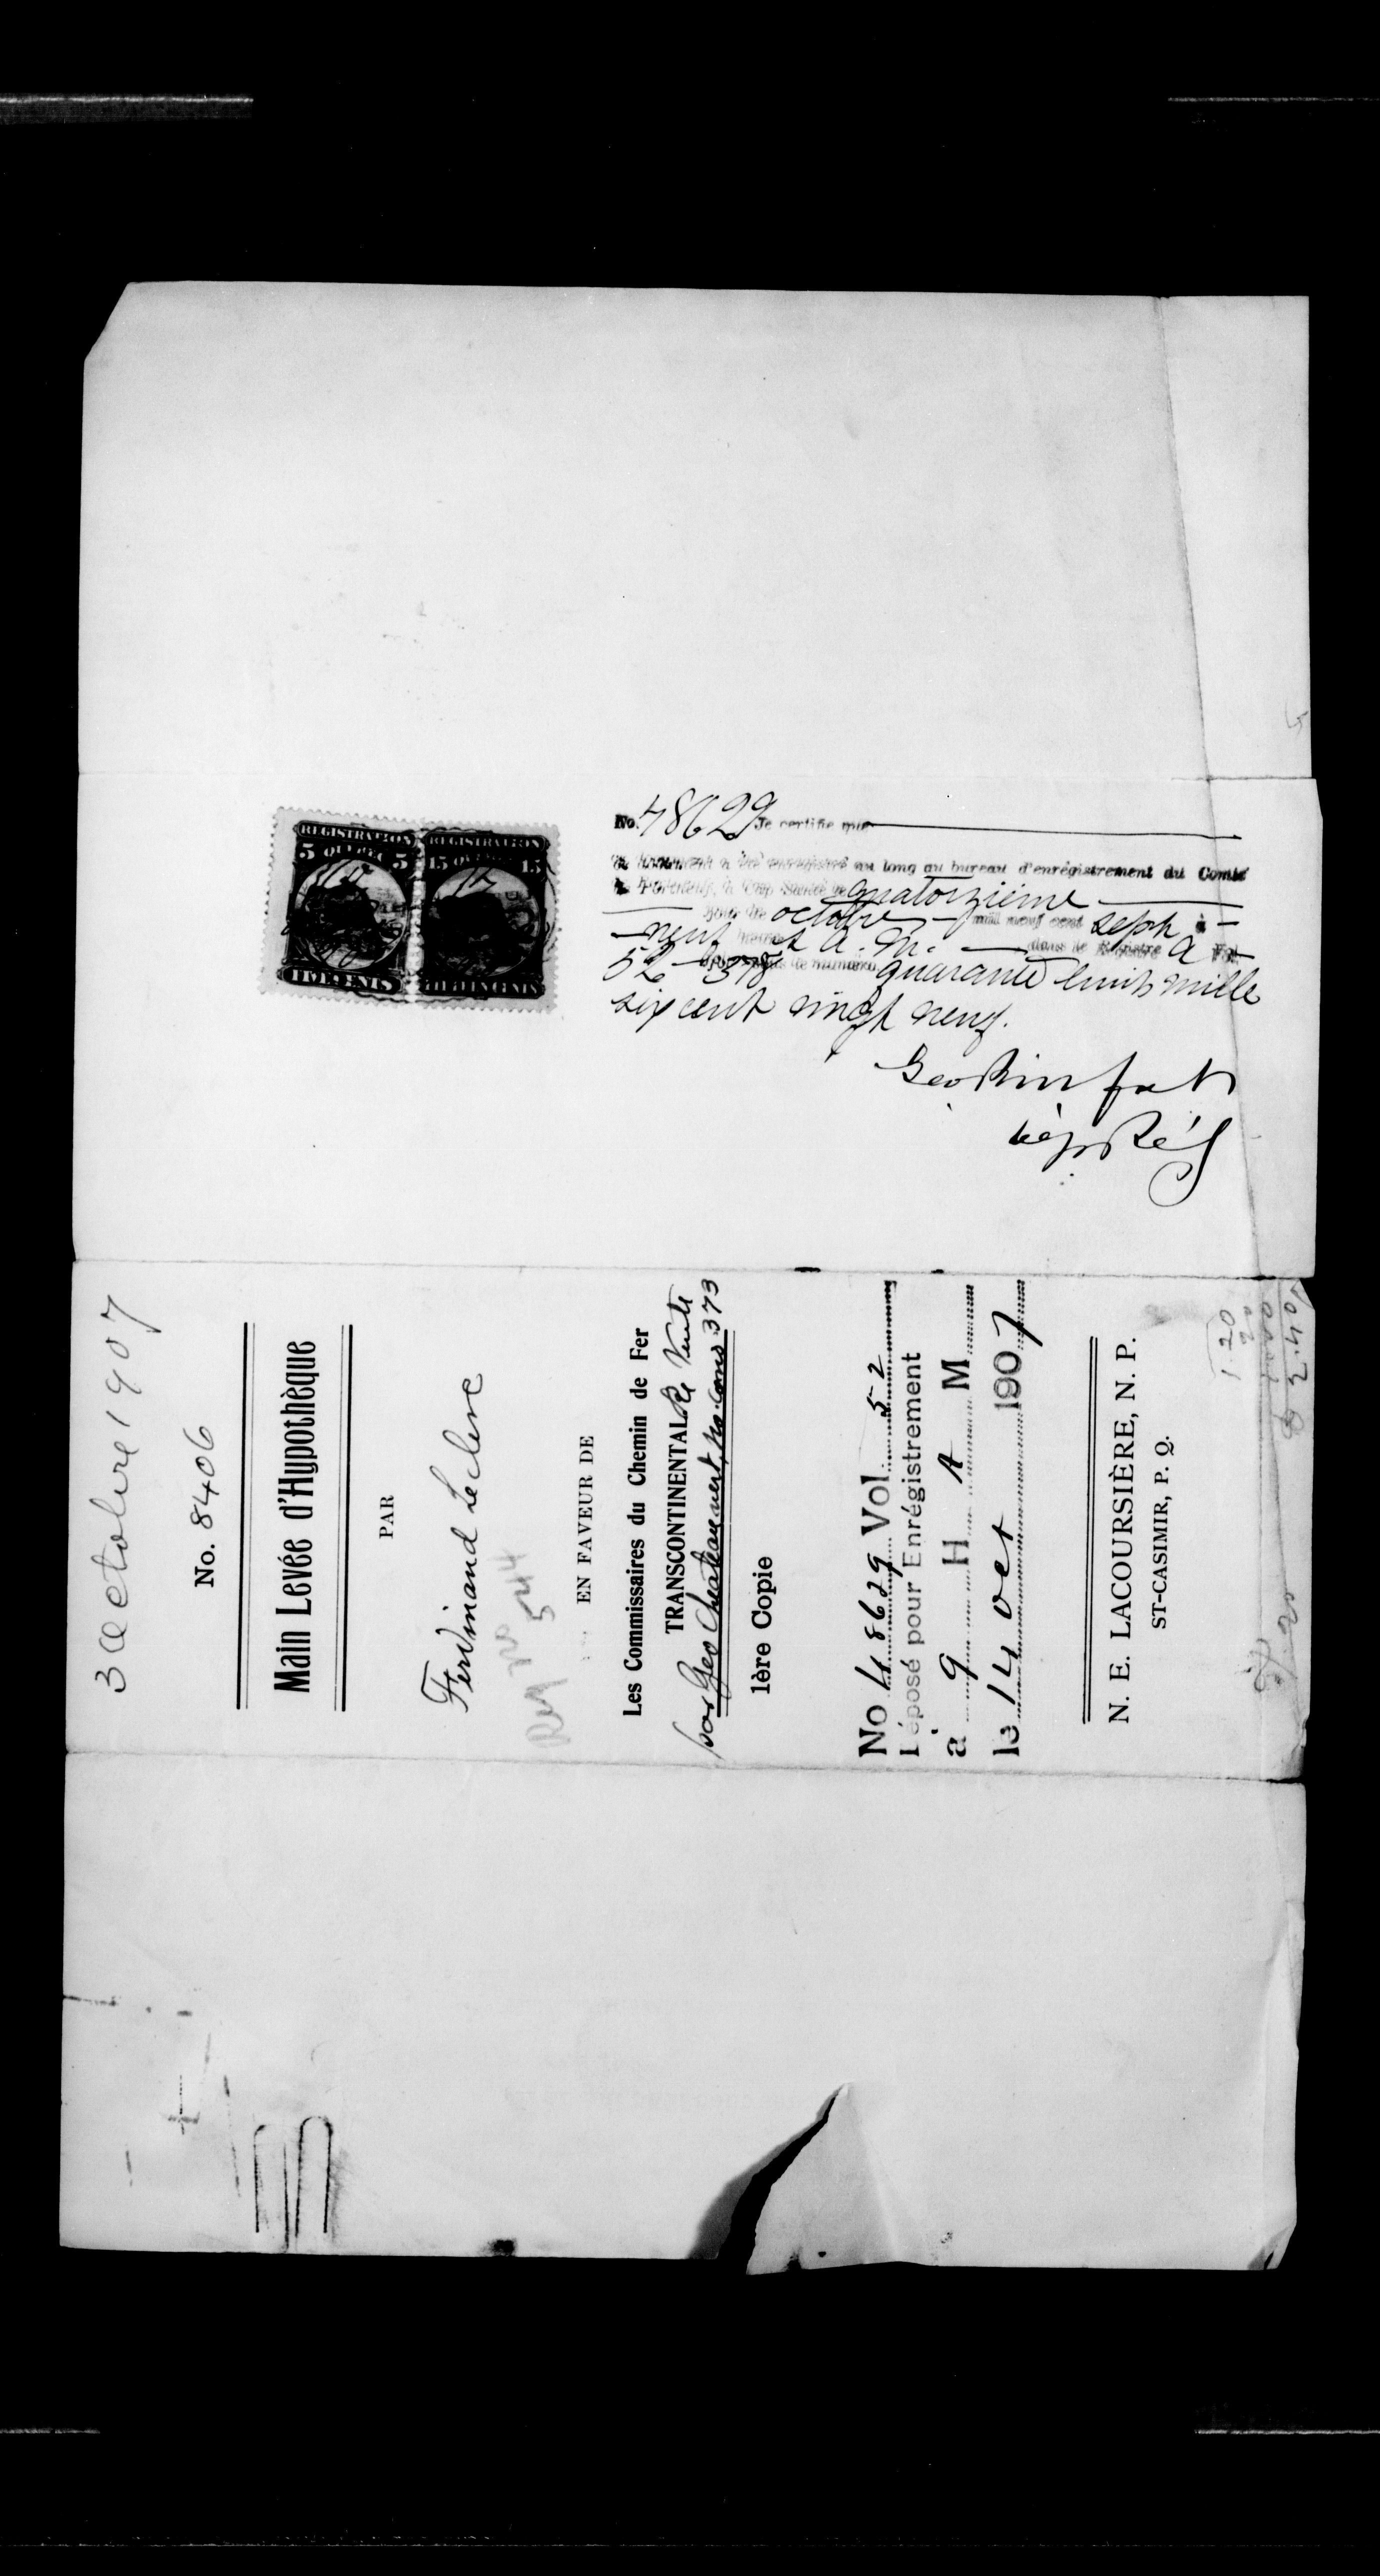 REGISTRATION REGISTRATION
5 QUEBEC 5 15 QUEBEC 15
FIVE CENTS FIFTEEN CENTS
No. 48629 Je certifie que
le document a été enregistré au long au bureau d'enrégistrement du Comté
de Portneuf, à Cap Santé le quatorzième
jour de octobre mil neuf cent sept à
neuf heures A. M. dans le Registre A Vol.
52 sous le numéro quarante huit mille
six cent vingt neuf.
Dép Rég
3 Octobre 1907
No. 8406
Main Levée d'Hypothèque
PAR
Ferdinand Leclerc
Reg No 544
EN FAVEUR DE
Les Commissaires du Chemin de Fer
TRANSCONTINENTAL Re Vente
par Geo Chateauvert, No. Cons 373
1ère Copie
No 48629 Vol 52
Déposé pour Enrégistrement
à 9 H A M
le 14 Oct 1907
N. E. LACOURSIÈRE, N. P.
ST-CASIMIR, P. Q.
1.20
20
1.00
2.40